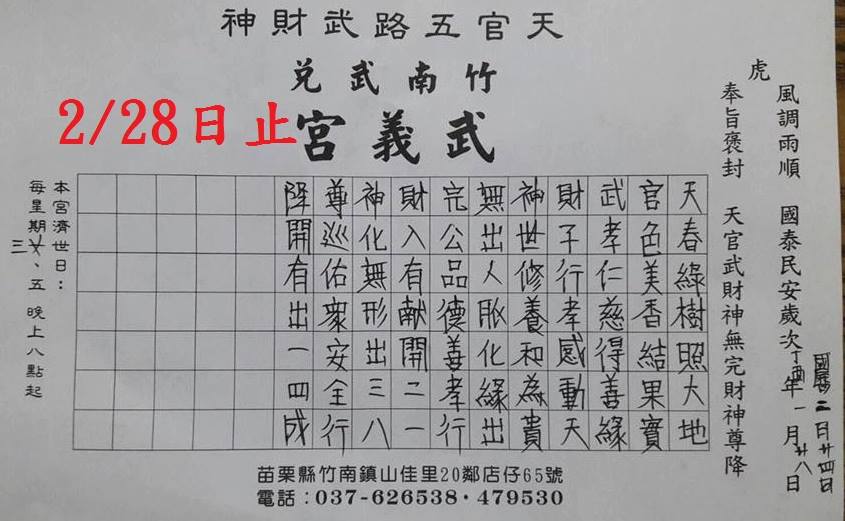 天官五路武財神
竹南武兌
武義宮
2/28日止
風調雨順 國泰民安歲次丁酉年一月廿八日
國曆二日廿四日
虎
奉旨褒封 天官武財神無完財神尊降
天春綠樹照大地
官色美香結果實
武孝仁慈得善緣
財子行孝感動天
神世修養和為貴
無出人脈化緣出
完公品德善孝行
財入有献開二一
神化無形出三八
尊巡佑眾安全行
降開有出一四成
本宮濟世日：
每星期三、五 晚上八點起
苗栗縣竹南鎮山佳里20鄰店仔65號
電話：037-626538・479530